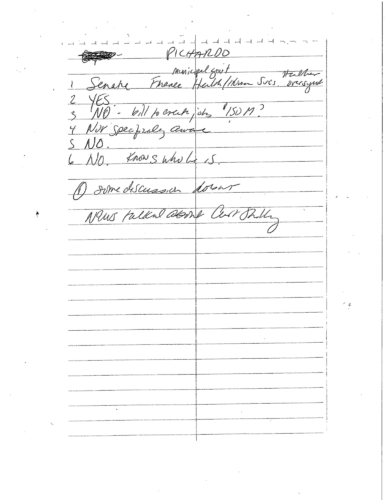 PICHARDO
municipal govt
1 Senate Finance Health/Human Svcs. oversight
2 YES
3 NO - bill to create jobs "150 M"?
4 Not specifically aware
5 NO.
6 NO. Knows who he is.
① some discussion
News talked about Curt